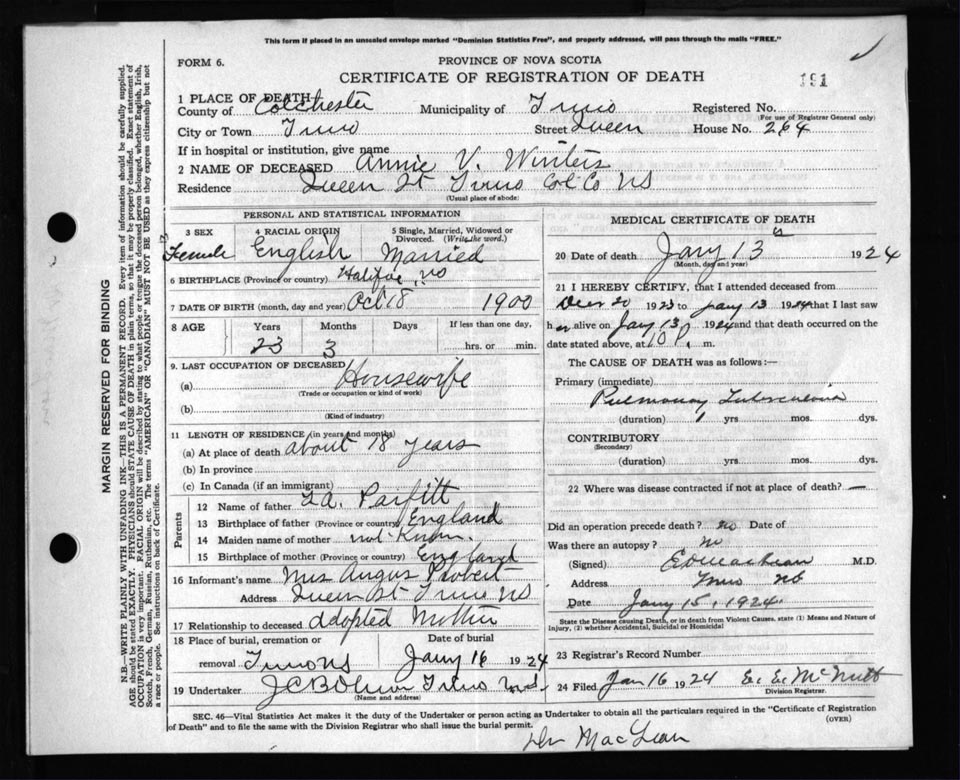 This form if placed in an unsealed envelope marked "Dominion Statistics Free", and properly addressed, will pass through the mails "FREE."
FORM 6.
PROVINCE OF NOVA SCOTIA
CERTIFICATE OF REGISTRATION OF DEATH
191
1 PLACE OF DEATH
County of Colchester Municipality of Truro Registered No.
(For use of Registrar General only)
City or Town Truro Street Queen House No. 264
If in hospital or institution, give name
2 NAME OF DECEASED Annie V. Winters
Residence Queen St Truro Col Co NS
(Usual place of abode)
PERSONAL AND STATISTICAL INFORMATION
3 SEX 4 RACIAL ORIGIN 5 Single, Married, Widowed or Divorced. (Write the word.)
Female English Married
6 BIRTHPLACE (Province or country) Halifax, NS
7 DATE OF BIRTH (month, day and year) Oct 18 1900
8 AGE Years Months Days If less than one day,
23 3 hrs. or min.
9. LAST OCCUPATION OF DECEASED
(a) Housewife
(Trade or occupation or kind of work)
(b)
(Kind of industry)
11 LENGTH OF RESIDENCE (in years and months)
(a) At place of death about 18 years
(b) In province
(c) In Canada (if an immigrant)
Parents
12 Name of father Parfitt
13 Birthplace of father (Province or country) England
14 Maiden name of mother not Known.
15 Birthplace of mother (Province or country) England
16 Informant's name Mrs Angus Probert
Address Queen St Truro NS
17 Relationship to deceased adopted Mother
18 Place of burial, cremation or Date of burial
removal Truro NS Jany 16 1924
19 Undertaker Truro
(Name and address)
MEDICAL CERTIFICATE OF DEATH
20 Date of death Jany 13 1924
(Month, day and year)
21 I HEREBY CERTIFY, that I attended deceased from
Decr 20 1923 to Jany 13 1924 that I last saw
her alive on Jany 13 1924 and that death occurred on the
date stated above, at 10 P. m.
The CAUSE OF DEATH was as follows:—
Primary (immediate)
Pulmonary Tuberculosis
(duration) 1 yrs mos. dys.
CONTRIBUTORY
(Secondary)
(duration) yrs mos. dys.
22 Where was disease contracted if not at place of death? —
Did an operation precede death? no Date of
Was there an autopsy? no
(Signed) M.D.
Address Truro NS
Date Jany 15, 1924.
State the Disease causing Death, or in death from Violent Causes, state (1) Means and Nature of
Injury, (2) whether Accidental, Suicidal or Homicidal
23 Registrar's Record Number
24 Filed Jan 16 1924 E. E. McNutt
Division Registrar.
SEC. 46—Vital Statistics Act makes it the duty of the Undertaker or person acting as Undertaker to obtain all the particulars required in the "Certificate of Registration
of Death" and to file the same with the Division Registrar who shall issue the burial permit.
(OVER)
Dr MacLean
MARGIN RESERVED FOR BINDING
N.B.—WRITE PLAINLY WITH UNFADING INK—THIS IS A PERMANENT RECORD. Every item of information should be carefully supplied.
AGE should be stated EXACTLY. PHYSICIANS should STATE CAUSE OF DEATH in plain terms, so that it may be properly classified. Exact statement of
OCCUPATION is very important. RACIAL ORIGIN will be described by stating to what people or tongue the deceased person belonged, whether English, Irish,
Scotch, French, German, Russian, Ruthenian, etc. The terms "AMERICAN" OR "CANADIAN" MUST NOT BE USED as they express citizenship but not
a race or people. See instructions on back of Certificate.